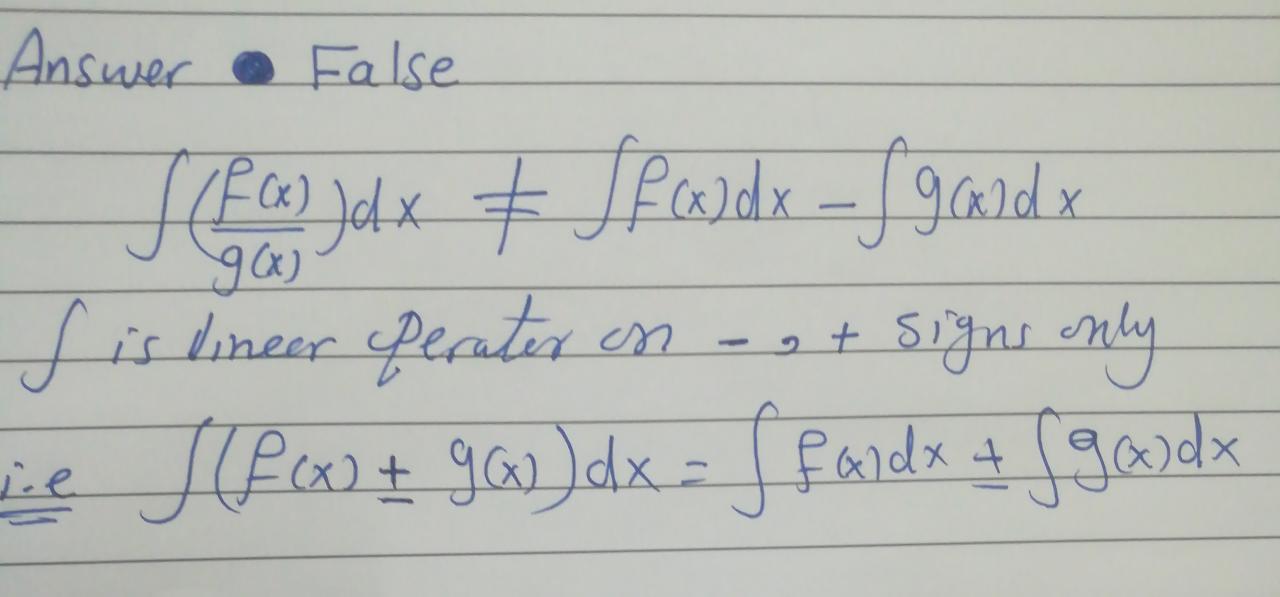 Answer ● False
∫(f(x)/g(x))dx ≠ ∫f(x)dx - ∫g(x)dx
∫ is lineer operater on - , + signs only
i.e ∫(f(x) ± g(x))dx = ∫f(x)dx ± ∫g(x)dx